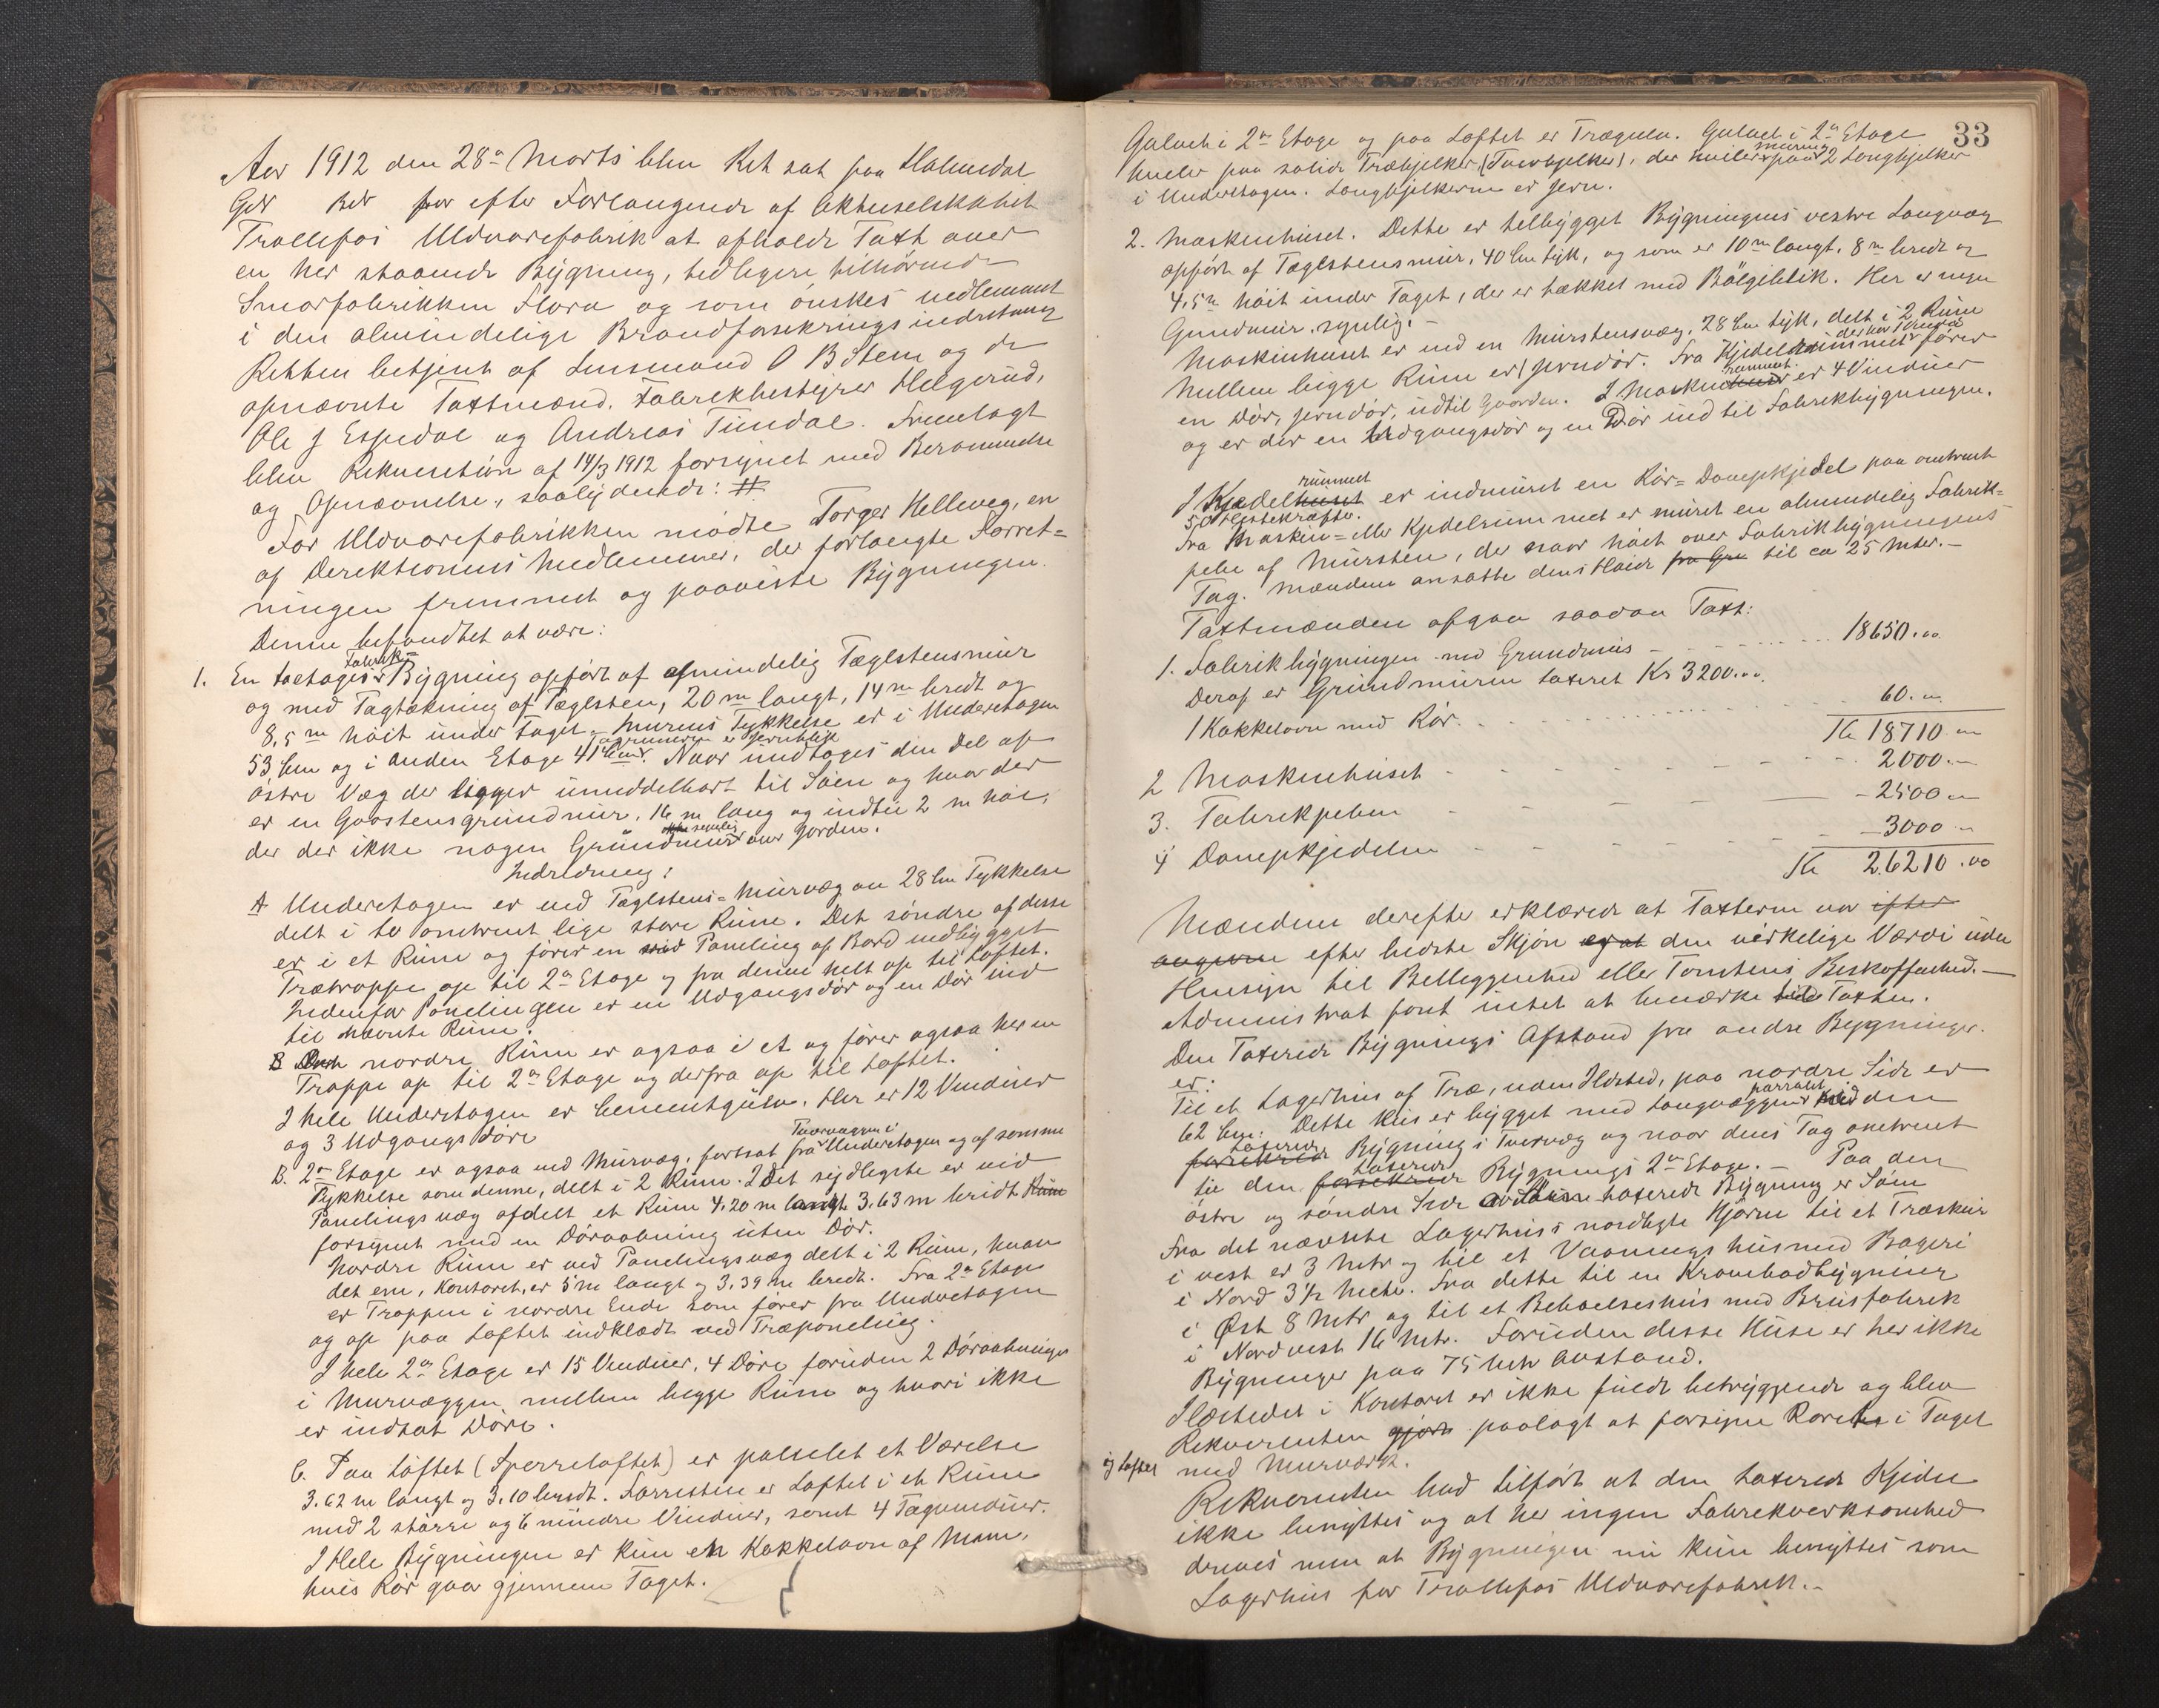 Aar 1912 den 28de Marts blev Ret sat paa Halmedal
Gdr Bdr for efter Forlangende af Aktieselskabet
Trollefos Uldvarefabrik at afholde Taxt over
en her staaende Bygning, tidligere tilhørende
Smørfabrikken Flora og som ønskes indlemmet
i den almindelige Brandforsikringsindretning
Retten betjent af Lensmand O B Stem og de
opnævnte Taxtmænd, Fabrikbestyrer Helgerud,
Ole J Espedal og Andreas Tundal. Fremlagt
blev Rekvisition af 14/3 1912 forsynet med Berammelse
og Opnævnelse, saalydende: #
For Uldvarefabrikken mødte Torger Helleveg, en
af Direktionens Medlemmer, der forlangte Forret-
ningen fremmet og paaviste Bygningen.
Denne befandtes at være:
1. En toetages Fabrik- Bygning opført af almindelig Teglstensmur
og med Tagtækning af Teglsten, 20 m langt, 14 m bredt og
8,5 m høit under Taget. Murens Tykkelse er i Underetagen
53 cm og i anden Etage 41 cm. Naar undtages den Del af
østre Væg der ligger umiddelbart til Søen og hvor der
er en Graastensgrundmur, 16 m lang og indtil 2 m høi,
der der ikke nogen Grundmur synlig over Jorden.
Indredning:
A Underetagen er ved Teglstens-Murvæg av 28 cm Tykkelse
delt i to omtrent lige store Rum. Det søndre af disse
er i et Rum og fører en ved Paneling af Bord indbygget
Trætrappe op til 2den Etage og fra denne helt op til Loftet.
Indenfor Panelingen er en Udgangsdør og en Dør ind
til nævnte Rum.
B Det nordre Rum er ogsaa i et og fører ogsaa her en
Trappe op til 2den Etage og derfra op til Loftet.
I hele Underetagen er Cementgulv. Her er 12 Vinduer
og 3 Udgangsdøre
B. 2den Etage er ogsaa ved Murvæg, fortsat fra Tværvæggen i Underetagen og af samme
Tykkelse som denne, delt i 2 Rum. I det sydligste er ved
Panelingsvæg afdelt et Rum 4,20 m langt 3,63 m bredt
forsynet med en Døraabning uten Dør.
Nordre Rum er ved Panelingsvæg delt i 2 Rum, hvoraf
det ene, Kontoret, er 5 m langt og 3,39 m bredt. Fra 2den Etage
er Trappen i nordre Ende som fører fra Underetagen
og op paa Loftet indklædt ved Træpaneling.
I hele 2den Etage er 15 Vinduer, 4 Døre foruden 2 Døraabninger
i Murvæggen mellem begge Rum og hvori ikke
er indsat Døre.
C. Paa Loftet (Sperreloftet) er panelet et Værelse
3,62 m langt og 3,10 bredt. Forresten er Loftet i et Rum
med 2 større og 6 mindre Vinduer, samt 4 Tagvinduer.
I Hele Bygningen er kun en Kakkelovn af
hvis Rør gaar gjennem Taget.
33
Gulvet i 2den Etage og paa Loftet er Trægulv. Gulvet i 2den Etage
hviler paa solide Træbjelker (Tverbjelker), der hviler paa 2 Langbjelker
i Underetagen. Langbjelkerne er Jern.
2. Maskinhuset. Dette er tilbygget Bygningens vestre Langvæg
opført af Teglstensmur, 40 cm tyk, og som er 10 m langt, 8 m bredt og
4,5 m høit under Taget, der er tækket med Bølgeblik. Her er ingen
Grundmur synlig. -
Maskinhuset er ved en Murstensvæg, 28 cm tyk, delt i 2 Rum
Mellem begge Rum er Jerndør. Fra Kjedelrummet fører
en Dør, Jerndør, udtil Gaarden. I Maskinrummet er 4 Vinduer
og er der en Udgangsdør og en Dør ind til Fabrikbygningen.
I Kjedelhuset rummet er indmuret en Rør-Dampkjedel paa omtrent
50 Hestekræfter.
Fra Maskin- eller Kjedelrummet er muret en almindelig Fabrik-
pibe af Mursten, der naar høit over Fabrikbygningens
Tag. Mændene ansatte dens Høide fra Gru til ca 25 Meter. -
Taxtmænden afgav saadan Taxt:
1. Fabrikbygningen med Grundmur - - - 18650.00
Deraf er Grundmuren taxeret Kr 3200.00.
1 Kakkelovn med Rør. - - - 60.00
Kr 18710 00
2 Maskinhuset - - - 2000.00
3. Fabrikpiben - - - 2500 00
4 Dampkjedelen - - - 3000 00
Kr 26210.00
Mændene derefter erklærede at Taxterne var efter
angivne efter bedste Skjøn og at den virkelige Værdi uden
Hensyn til Beliggenhed eller Tomtens Beskaffenhed. -
Administrat fant intet at bemærke til Taxten.
Den Taxerede Bygnings Afstand fra andre Bygninger
er:
Til et Lagerhus af Træ, uden Ildsted, paa nordre Side er
62 cm: Dette Hus er bygget med Langvæggen parralel med den
forsikrede taxerede Bygnings Tvervæg og naar dens Tag omtrent
til den forsikrede taxerede Bygnings 2den Etage. - Paa den
østre og søndre Side av taxerede Bygning er Søen
Fra det nævnte Lagerhus's nordligste Hjørne til et Træskur
i vest er 3 Mtr og til et Vaaningshus med Bageri
i Nord 3½ Meter. Fra dette til en Krambodbygning
i Øst 8 Mtr og til et Beboelseshus med Brusfabrik
i Nordvest 16 Mtr. Foruden disse Huse er her ikke
Bygninger paa 75 Mtr Avstand.
Ildstedet i Kontoret er ikke fuldt betryggende og blev
Rekvirenten gjort paalagt at forsyne Røret i Taget
og Loftet med Murværk.
Rekvirenten bad tilført at den taxerede Kjedel
ikke benyttes og at her ingen Fabrikvirksomhed
drives men at Bygningen nu kun benyttes som
Lagerhus for Trollefos Uldvarefabrik. -